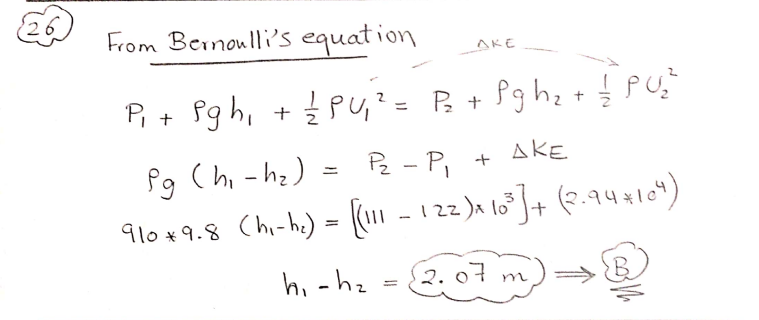 26 From Bernoulli's equation
ΔKE
P₁ + ρgh₁ + ½ρU₁² = P₂ + ρgh₂ + ½ρU₂²
ρg (h₁ - h₂) = P₂ - P₁ + ΔKE
910 * 9.8 (h₁-h₂) = [(111 - 122)*10³] + (2.94*10⁴)
h₁ - h₂ = 2.07 m ⇒ B